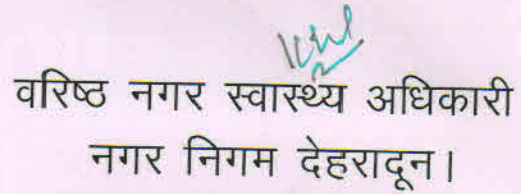 वरिष्ठ नगर स्वास्थ्य अधिकारी
नगर निगम देहरादून।